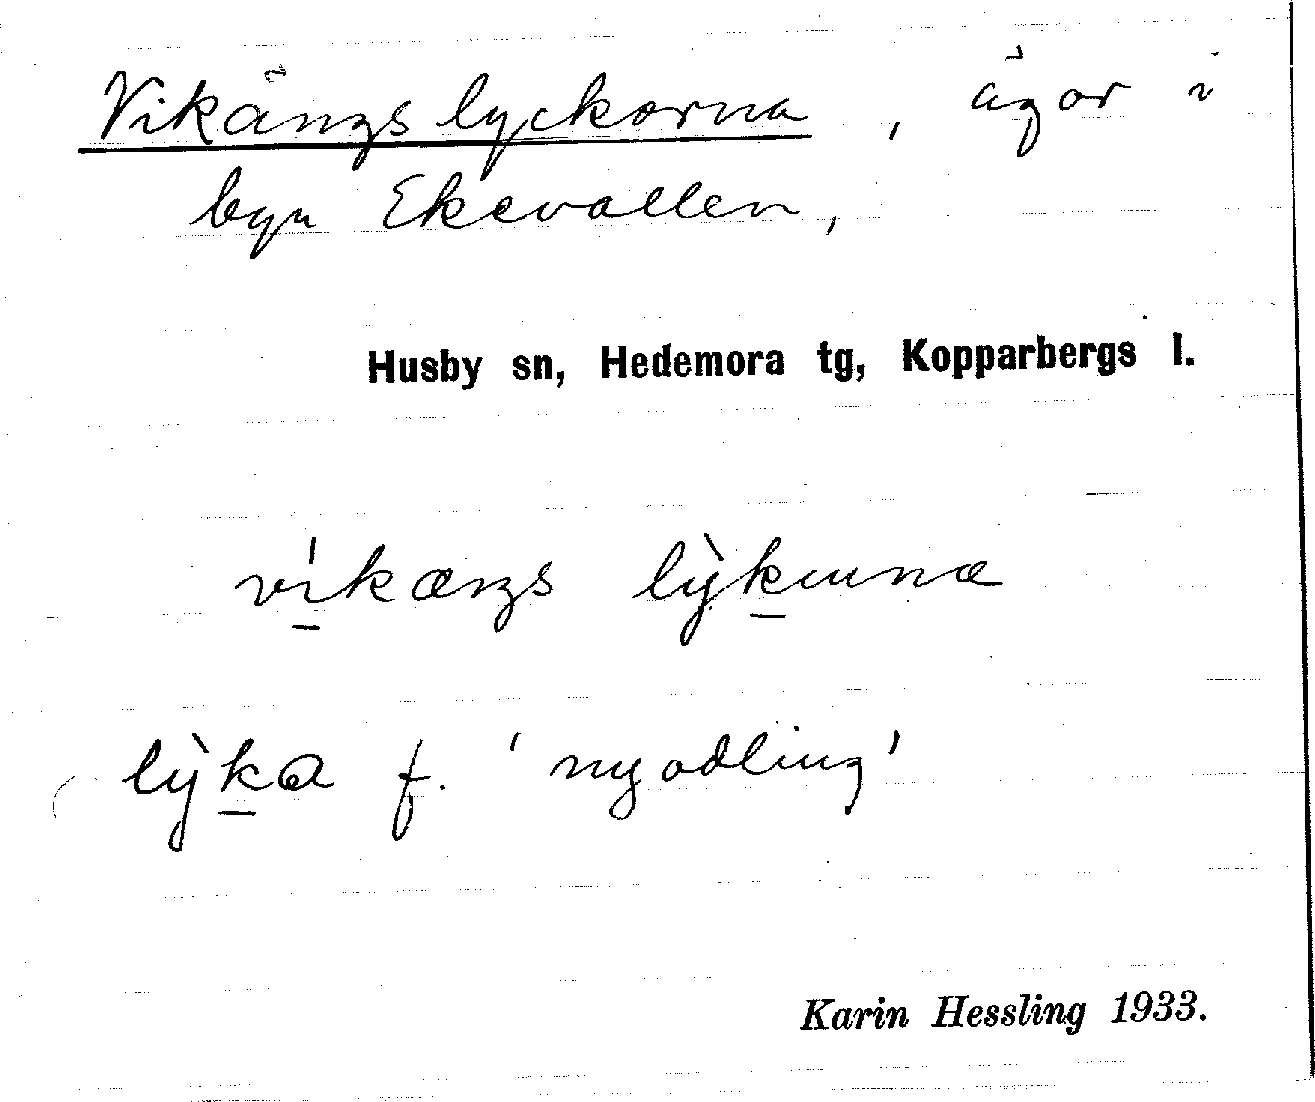 Vikängslyckorna, ägor i
byn Ekevallen,
Husby sn, Hedemora tg, Kopparbergs l.
víkæŋs lỳkuna
lỳka f. 'nyodling'
Karin Hessling 1933.